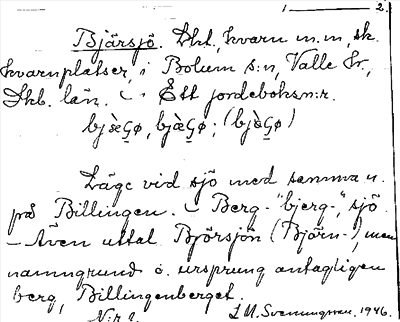 1 — 2.
Bjärsjö. Dkt., kvarn m.m., sk.
kvarnplatser, i Bolum s:n, Valle hr.,
Skb. län. — Ett jordeboksn:r.
bjæ̀ʂø, bjæ̀ʂø; (bjæ̀ʂø)
Läge vid sjö med samma n.
på Billingen. — Berg- "bjerg-", sjö.
— Även uttal Björsjön (Björn-), men
namngrund o. ursprung antagligen
berg, Billingenberget.
N:r 2. I.M. Svenungsson. 1946.